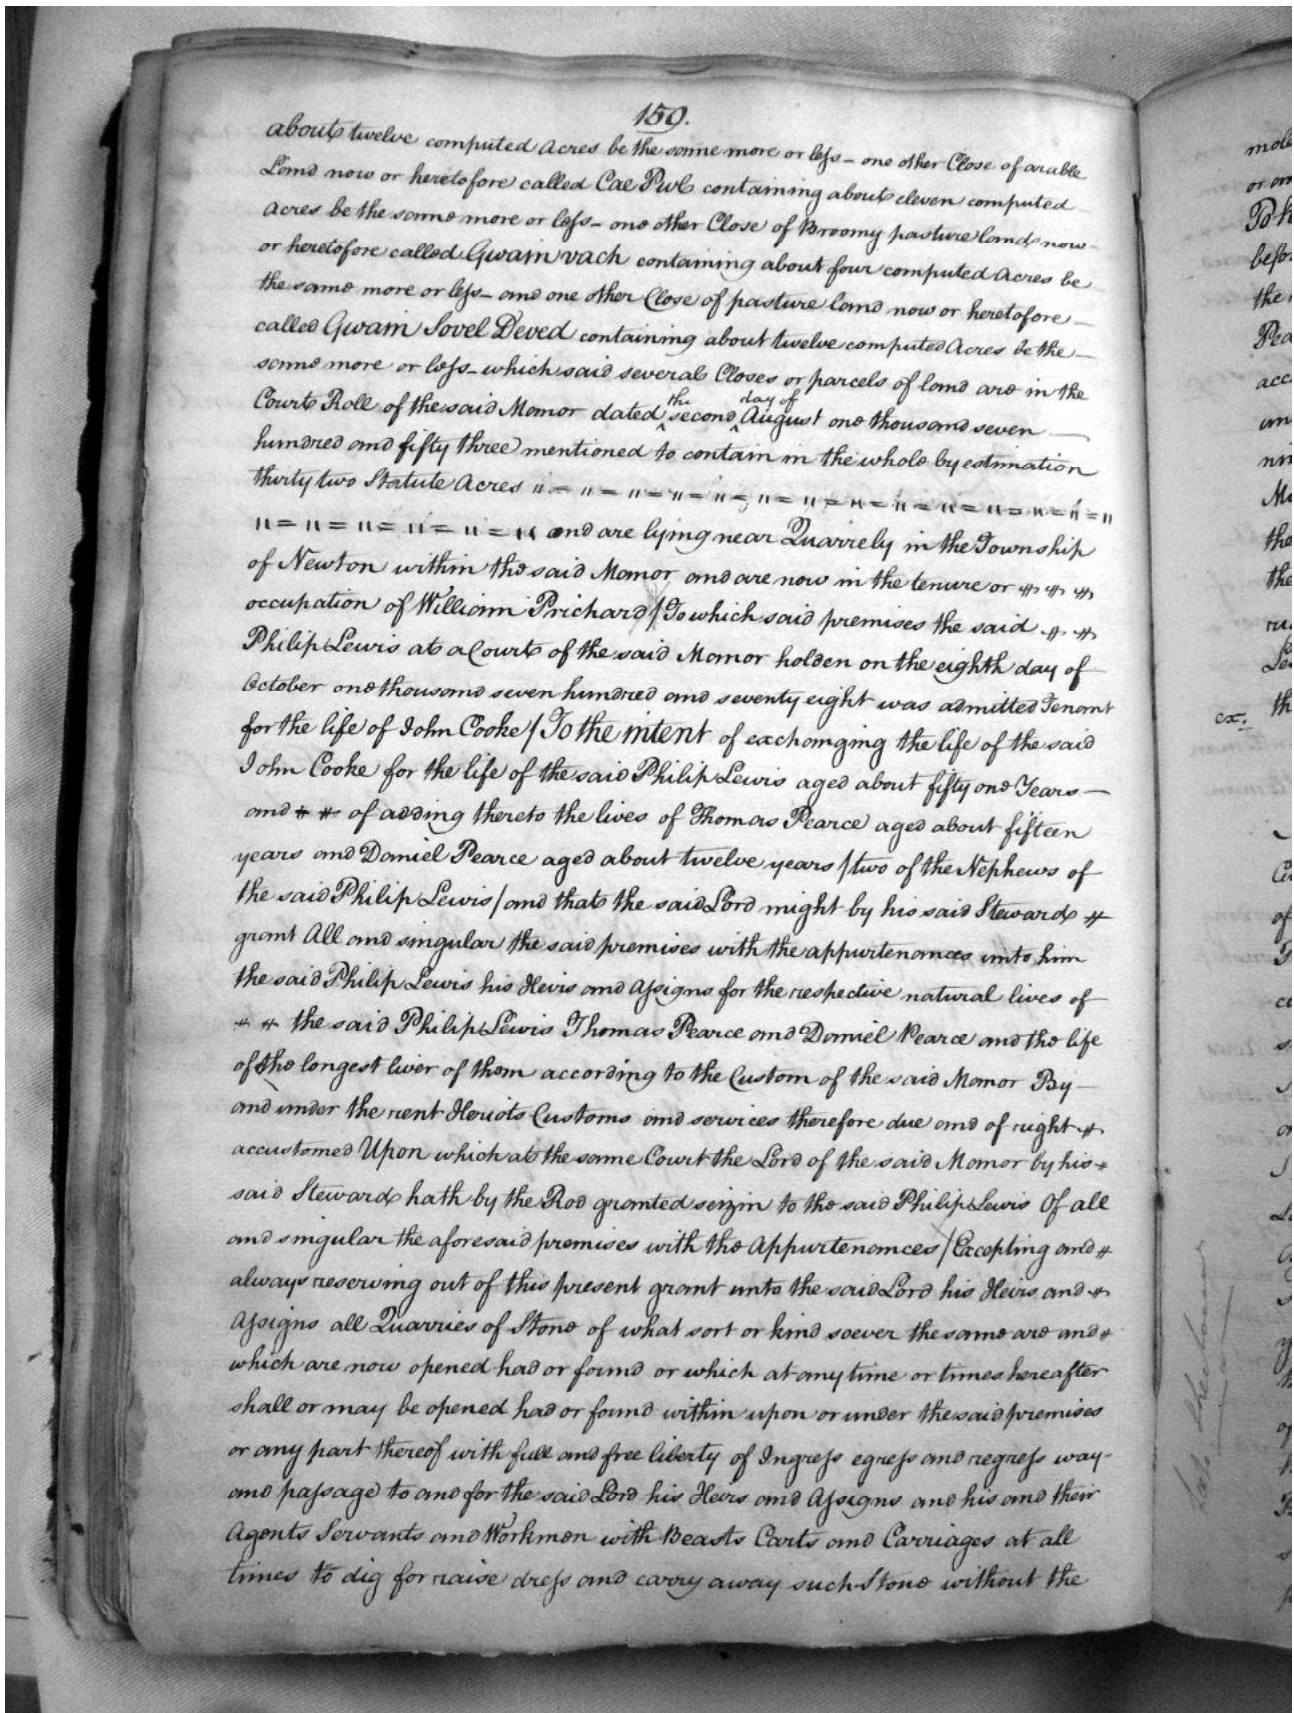 159.
about twelve computed Acres be the same more or less – one other Close of arable
Land now or heretofore called Cae Pwl containing about eleven computed
Acres be the same more or less – one other Close of Broomy pasture land now
or heretofore called Gwain vach containing about four computed Acres be
the same more or less – and one other Close of pasture land now or heretofore –
called Gwain Sovel Deved containing about twelve computed Acres be the –
same more or less – which said several Closes or parcels of land are in the
Court Roll of the said Manor dated ^the second ^day of August one thousand seven —
hundred and fifty three mentioned to contain in the whole by estimation
thirty two Statute Acres " = " = " = " = " = " = " = " = " = " = " = " = " = "
" = " = " = " = " = " = " and are lying near Quarrely in the Township
of Newton within the said Manor and are now in the tenure or # # #
occupation of William Prichard / To which said premises the said # #
Philip Lewis at a Court of the said Manor holden on the eighth day of
October one thousand seven hundred and seventy eight was admitted Tenant
for the life of John Cooke / To the intent of exchanging the life of the said
John Cooke for the life of the said Philip Lewis aged about fifty one Years —
and # # of adding thereto the lives of Thomas Pearce aged about fifteen
years and Daniel Pearce aged about twelve years / two of the Nephews of
the said Philip Lewis / and that the said Lord might by his said Steward #
grant All and singular the said premises with the appurtenances unto him
the said Philip Lewis his Heirs and Assigns for the respective natural lives of
# # the said Philip Lewis Thomas Pearce and Daniel Pearce and the life
of the longest liver of them according to the Custom of the said Manor By —
and under the rent Heriots Customs and services therefore due and of right #
accustomed Upon which at the same Court the Lord of the said Manor by his #
said Steward hath by the Rod granted seizin to the said Philip Lewis Of all
and singular the aforesaid premises with the Appurtenances / Excepting and #
always reserving out of this present grant unto the said Lord his Heirs and #
Assigns all Quarries of Stone of what sort or kind soever the same are and #
which are now opened had or found or which at any time or times hereafter
shall or may be opened had or found within upon or under the said premises
or any part thereof with full and free liberty of Ingress egress and regress way -
and passage to and for the said Lord his Heirs and Assigns and his and their
Agents Servants and Workmen with Beasts Carts and Carriages at all
times to dig for raise dress and carry away such Stone without the
ex.